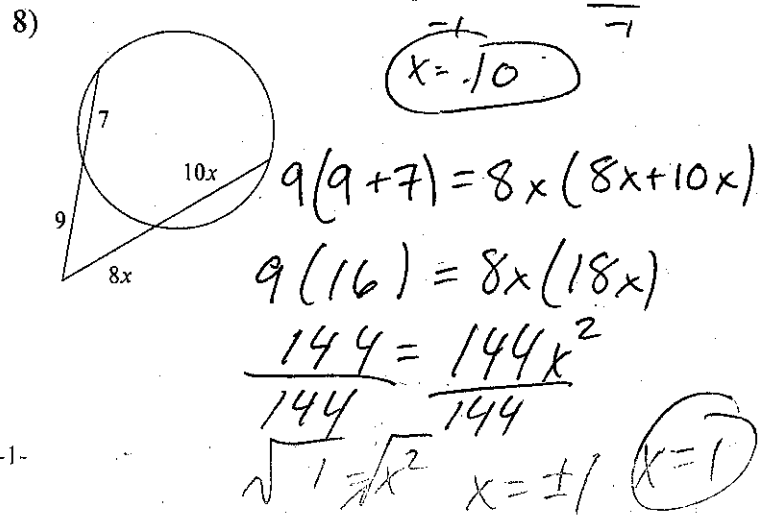 8)
-1
-1
x = 10
7
10x
9
8x
9(9+7) = 8x(8x+10x)
9(16) = 8x(18x)
144 = 144x²
144 144
√1 = √x² x = ±1 x = 1
-1-